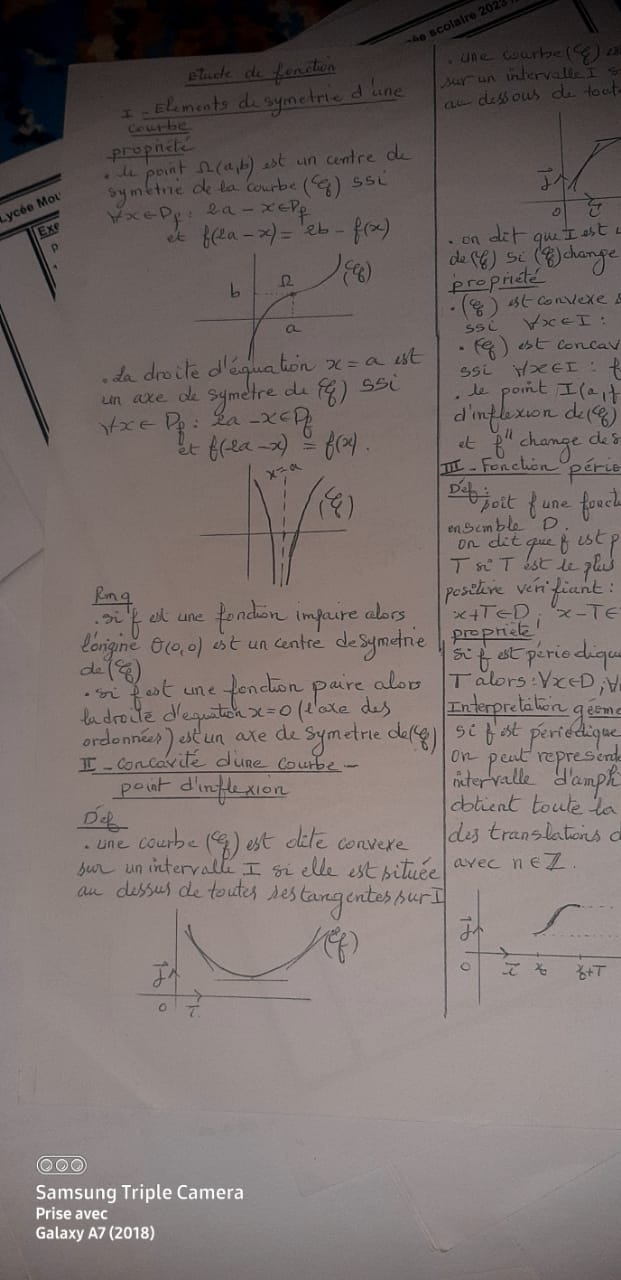 étude de fonction
I - Elements de symetrie d'une
courbe
propriété
. le point Ω(a,b) est un centre de
symétrie de la courbe (Cf) ssi
∀x∈Df : 2a - x∈Df
et f(2a-x) = 2b - f(x)
(Cf)
b
Ω
a
. La droite d'équation x = a est
un axe de symétre de (Cf) ssi
∀x∈ Df : 2a -x∈Df
et f(2a-x) = f(x).
x=a
(Cf)
Rmq
. si f est une fonction impaire alors
l'origine O(0,0) est un centre de symetrie
de (Cf)
. si f est une fonction paire alors
la droite d'equation x=0 (l'axe des
ordonnées) est un axe de symetrie de (Cf)
II - concavité d'une courbe -
point d'inflexion
Déf
. une courbe (Cf) est dite convexe
sur un intervalle I si elle est située
au dessus de toutes ses tangentes sur I
(Cf)
j
o
i
. une courbe (Cf)
sur un intervalle I
au dessous de tout
j
o
i
. on dit que I est
de (Cf) si (Cf) change
propriété
. (Cf) est convexe
ssi ∀x∈I :
. (Cf) est concav
ssi ∀x∈I : f
. le point I(a,f
d'inflexion de (Cf)
et f'' change de s
III - Fonction pério
Déf :
soit f une fonct
ensemble D.
on dit que f est p
T si T est le plus
positive vérifiant :
x+T∈D ; x-T∈
propriété
si f est périodique
T alors : ∀x∈D ; ∀
Interpretation géome
si f est périodique
on peut represente
intervalle d'ampl
obtient toute la
des translations d
avec n∈Z.
j
o
i
x₀
x₀+T
ée scolaire 2023
Lycée Mou
Exe
Samsung Triple Camera
Prise avec
Galaxy A7 (2018)